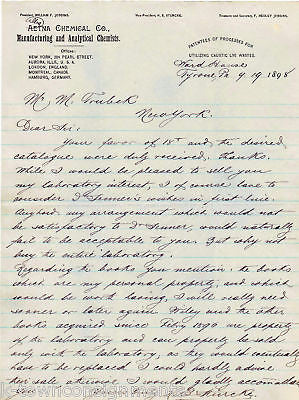 President, WILLIAM F. JOBBINS.
Vice-President, H. E. STURCKE.
Treasurer and Secretary, F. MEDLEY JOBBINS.
The
AETNA CHEMICAL CO.,
Manufacturing and Analytical Chemists.
Offices:
NEW YORK, 121 PEARL STREET.
AURORA, ILLS., U. S. A.
LONDON, ENGLAND.
MONTREAL, CANADA.
HAMBURG, GERMANY.
PATENTEES OF PROCEDURES FOR
UTILIZING CAUSTIC LYE WASTES.
Ward House
Tyrone, Pa 9/19, 1898
Mr. M. Toch
New York.
Dear Sir:
Your favor of 15th and the desired
catalogue were duly received, thanks.
While I would be pleased to sell you
my laboratory interest, I of course have to
consider D wishes in first line.
Anyhow my arrangement which would not
be satisfactory to D would naturally
fail to be acceptable to you. But why not
buy the entire laboratory.
Regarding the books you mention: the books
which are my personal property, and which
would be worth having, I will really need
sooner or later again. Wiley and the other
books acquired since Feb'y 1890 are property
of the laboratory and can properly be sold
only with the laboratory, as they would eventually
have to be replaced I could hardly advise
her sale otherwise I would gladly accomodate